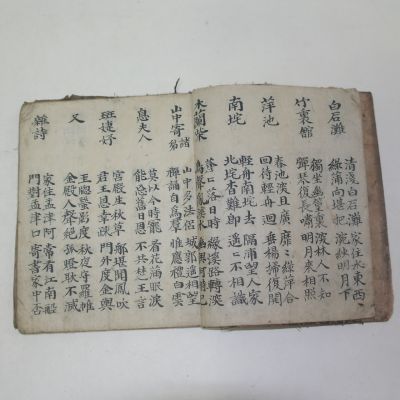 白石灘
清淺白石灘 家住水東西
綠蒲向堪把 浣紗明月下
竹裏館
獨坐幽篁裏 深林人不知
彈琴復長嘯 明月來相照
萍池
春池深且廣 靡〻綠萍合
回待輕舟迴 垂楊掃復開
南垞
輕舟南垞去 隔浦望人家
北垞杳難即 遥〻不相識
木蘭柴
蒼〻落日時 綠溪路轉深
鳥聲亂溪水 幽興何時已
山中寄諸
山中多法侶 城郭遥相望
禪誦自爲羣 惟應 白雲
息夫人
莫以今時寵 看花滿眼淚
能忘舊日恩 不共楚王言
班婕妤
宮殿生秋草 那堪聞鳳吹
君王恩幸疎 門外度金輿
又
玉窓螢影度 秋夜守羅帷
金殿人聲絕 孤燈耿不滅
雜詩
家住孟津河 常有江南船
門對孟津口 寄書家中否